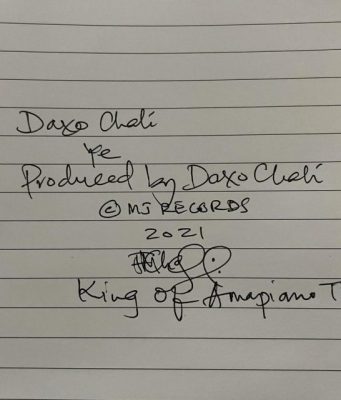 Daxo Chali
Ye
Produced by Daxo Chali
© MJ RECORDS
2021
King Of Amapiano T